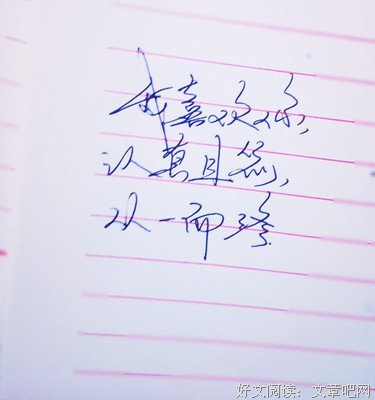 我喜欢你,
认真且怂,
从一而终.
好文阅读：文章吧网